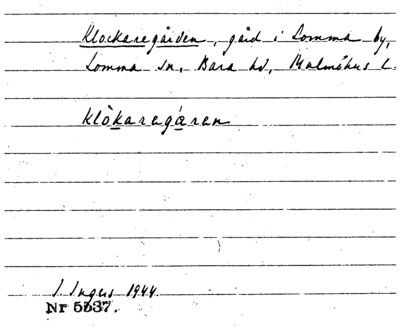 Klockaregården, gård i Lomma by,
Lomma sn, Bara hd, Malmöhus l.
klòkaregá̱ren
I. Ingers 1944.
Nr 5537.